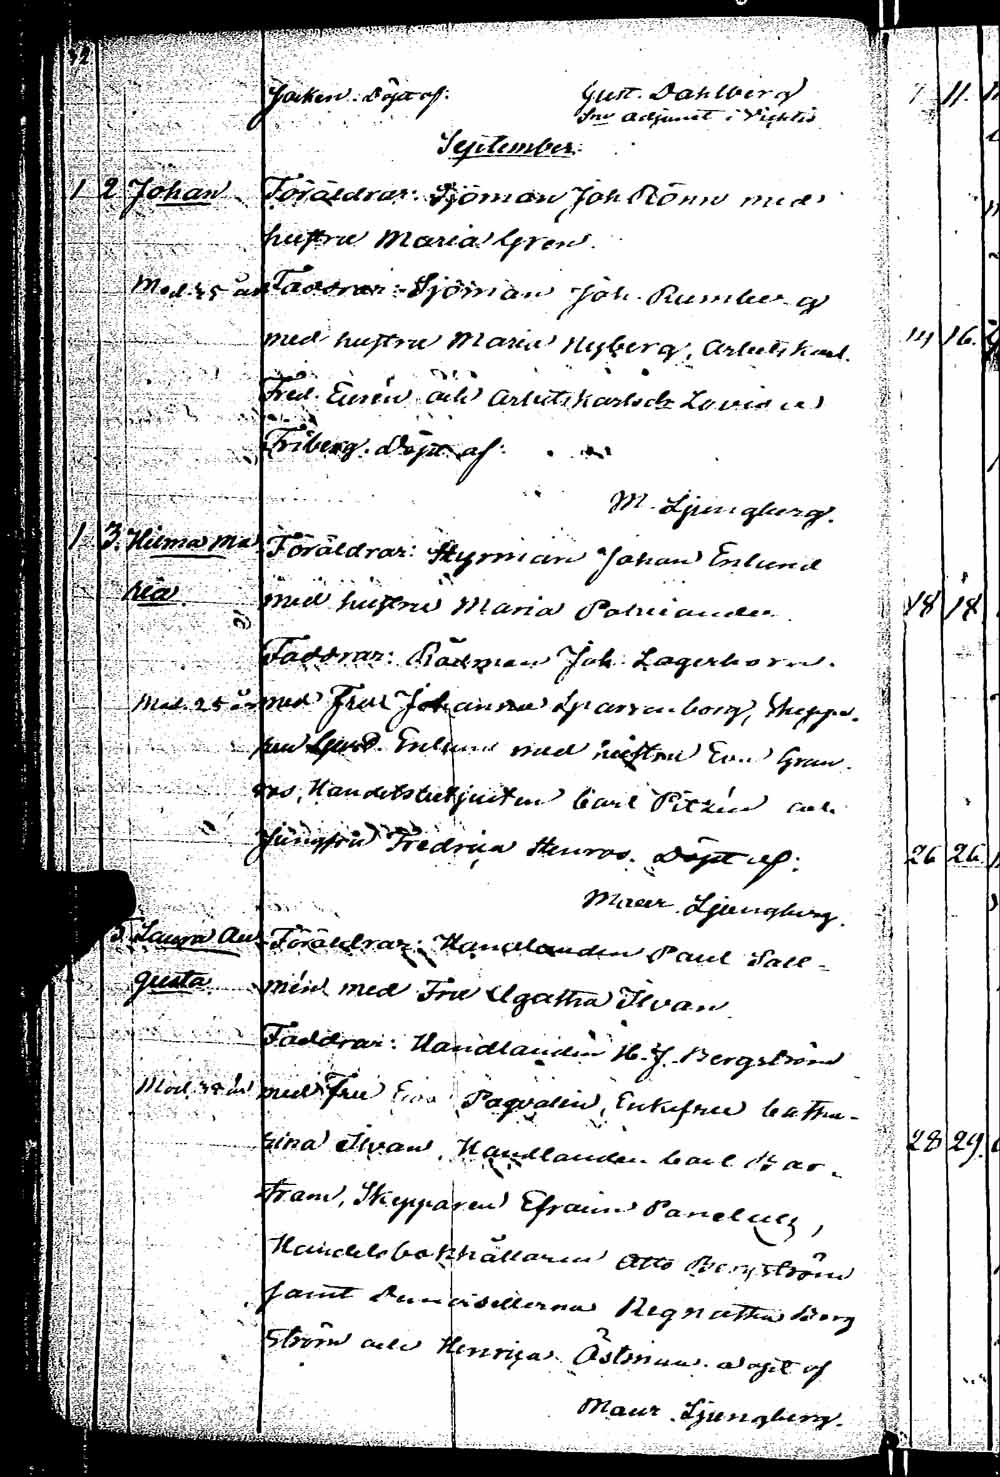 Jacken. Döpt af: Gust. Dahlberg
Sne adjunct i Vichtis
September.
1 2 Johan Föräldrar: Sjöman Joh. Rönn med
hustru Maria Gren.
Mod. 25 år Faddrar: Sjöman Joh. Rumberg
med hustru Maria Nyberg, Arbetskarl.
Fred. Eurén och Arbetskarlsdr Lovisa
Friberg. Döpt af:
M. Ljungberg.
1 3. Hilma Ma Föräldrar: Styrman Johan Enlund
ria. med hustru Maria
Faddrar: Rådman Joh. Lagerborn.
Mod. 25 år med Fru Johanna Sparrenborg, Skeppa-
ren Enlund med hustru Eva Gran-
ros, Handelsbetjenten Carl Pitzén och
Jungfru Fredrica Stenros. Döpt af:
Maur. Ljungberg.
5 Laura Au- Föräldrar: Handlanden Paul Sall-
gusta. mén med Fru Agatha Ilvan
Faddrar: Handlanden H. J. Bergström
Mod. år med Fru Eva Paqvalin, Enkefru Catha-
rina Ilvan, Handlanden Carl
tram, Skepparen Efraim
Handelsbokhållaren Otto Bergström
samt Demoisellerna Regnatha Berg
ström och Henrica Östman. döpt af
Maur. Ljungberg.
7 11.
14 16.
18 18
26 26
28 29.